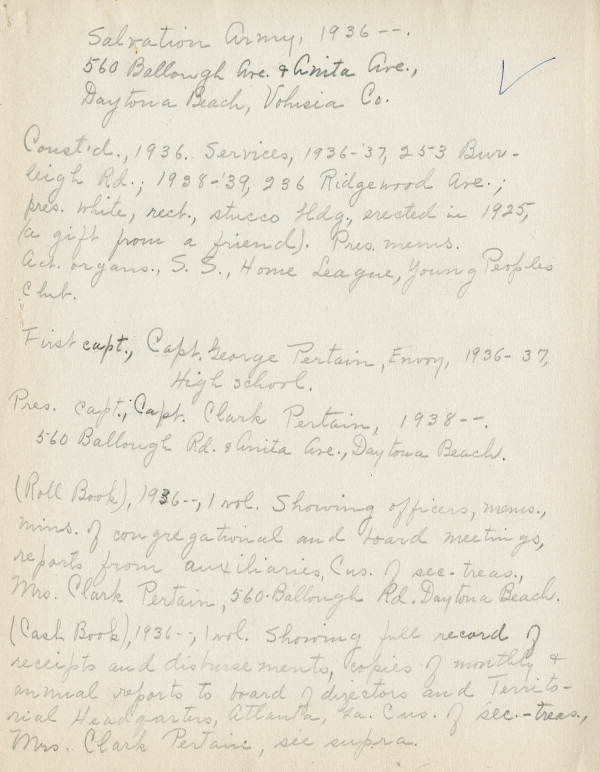 Salvation Army, 1936--.
560 Ballough Ave. & Anita Ave.,
Daytona Beach, Volusia Co.
Const'd., 1936. Services, 1936-'37, 253 Bur-
leigh Rd.; 1938-'39, 236 Ridgewood Ave.;
pres. white, rect., stucco bldg., erected in 1925,
(a gift from a friend). Pres. mems.
Act. organs., S. S., Home League, Young Peoples
Club.
First capt., Capt. George Pertain, Envoy, 1936-37,
High school.
Pres. capt.; Capt. Clark Pertain, 1938--.
560 Ballough Rd. & Anita Ave., Daytona Beach.
(Roll Book), 1936--, 1 vol. Showing officers, mems.,
mins. of congregational and board meetings,
reports from auxiliaries, Cus. of sec-treas.,
Mrs. Clark Pertain, 560 Ballough Rd. Daytona Beach.
(Cash Book), 1936--, 1 vol. Showing full record of
receipts and disbursements, copies of monthly &
annual reports to board of directors and Territo-
rial Headquarters, Atlanta, Ga. Cus. of sec.-treas.,
Mrs. Clark Pertain, see supra.